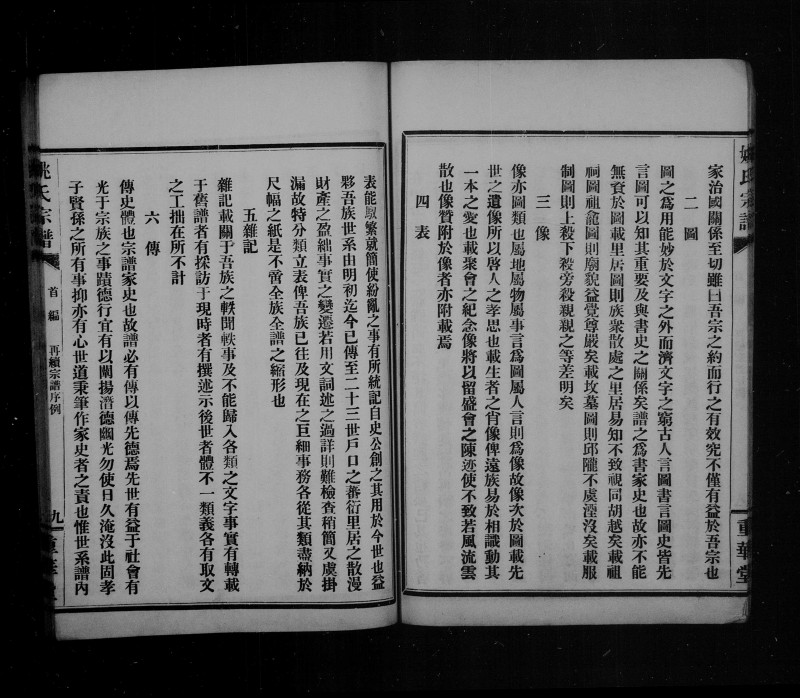 家治國關係至切雖曰吾宗之約而行之有效究不僅有益於吾宗也
二圖
圖之爲用能妙於文字之外而濟文字之窮古人言圖書言圖史皆先
言圖可以知其重要及與書史之關係矣譜之爲書家史也故亦不能
無資於圖載里居圖則族衆散處之里居易知不致視同胡越矣載祖
祠圖祖龕圖則廟貌益覺尊嚴矣載坟墓圖則邱隴不虞湮沒矣載服
制圖則上殺下殺旁殺親親之等差明矣
三像
像亦圖類也屬地屬物屬事言爲圖屬人言則爲像故像次於圖載先
世之遺像所以啓人之孝思也載生者之肖像俾遠族易於相識動其
一本之愛也載聚會之紀念像將以留盛會之陳迹使不致若風流雲
散也像贊附於像者亦附載焉
四表
姚氏宗譜
重華堂
表能馭繁就簡使紛亂之事有所統記自史公創之其用於今世也益
夥吾族世系由明初迄今已傳至二十三世戶口之蕃衍里居之散漫
財產之盈絀事實之變遷若用文詞述之過詳則難檢查稍簡又虞掛
漏故特分類立表俾吾族已往及現在之巨細事務各從其類盡納於
尺幅之紙是不啻全族全譜之縮形也
五雜記
雜記載關于吾族之軼聞軼事及不能歸入各類之文字事實有轉載
于舊譜者有採訪于現時者有撰述示後世者體不一類義各有取文
之工拙在所不計
六傳
傳史體也宗譜家史也故譜必有傳以傳先德焉先世有益于社會有
光于宗族之事蹟德行宜有以闡揚潛德幽光勿使日久淹沒此固孝
子賢孫之所有事抑亦有心世道秉筆作家史者之責也惟世系譜內
姚氏宗譜
首編
再續宗譜序例
九